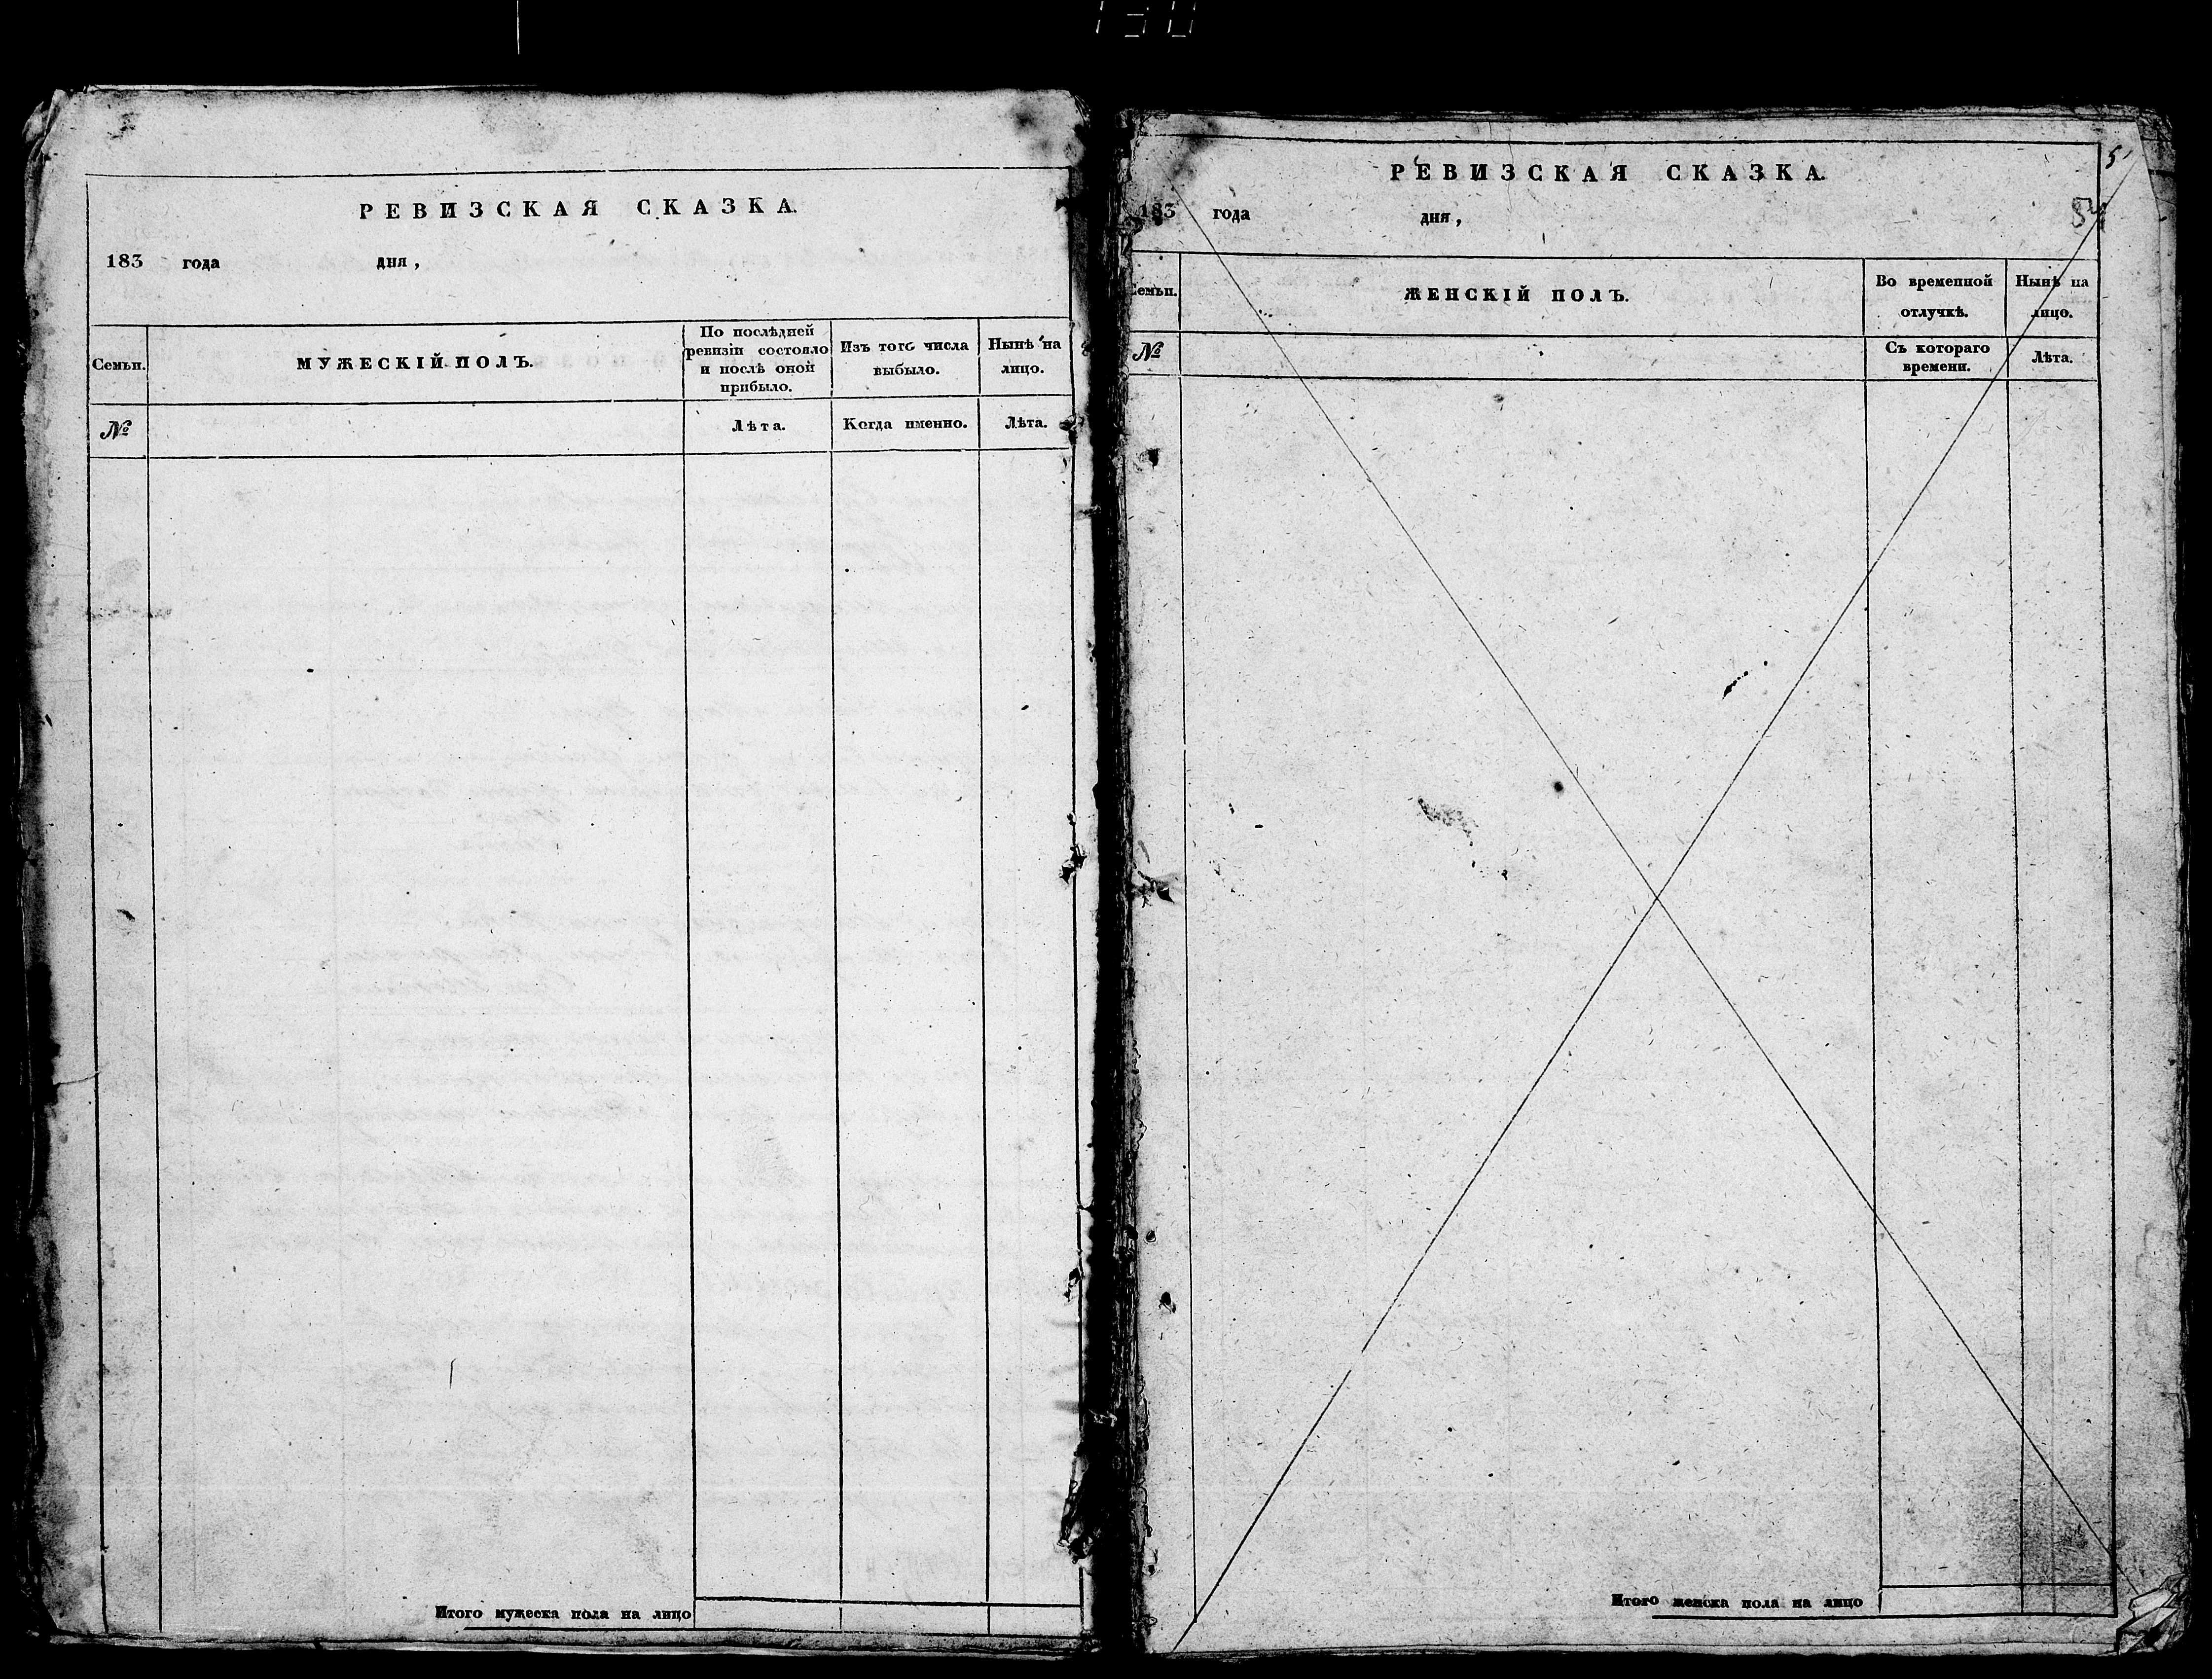 РЕВИЗСКАЯ СКАЗКА.
183 года дня,
Семьи.
МУЖЕСКІЙ ПОЛЪ.
По послѣдней
ревизіи состояло
и послѣ оной
прибыло.
Изъ того числа
выбыло.
Нынѣ на
лицо.
№
Лѣта.
Когда именно.
Лѣта.
Итого мужеска пола на лицо
5
РЕВИЗСКАЯ СКАЗКА.
183 года дня,
Семьи.
ЖЕНСКІЙ ПОЛЪ.
Во временной
отлучкѣ.
Нынѣ на
лицо.
№
Съ котораго
времени.
Лѣта.
Итого женска пола на лицо